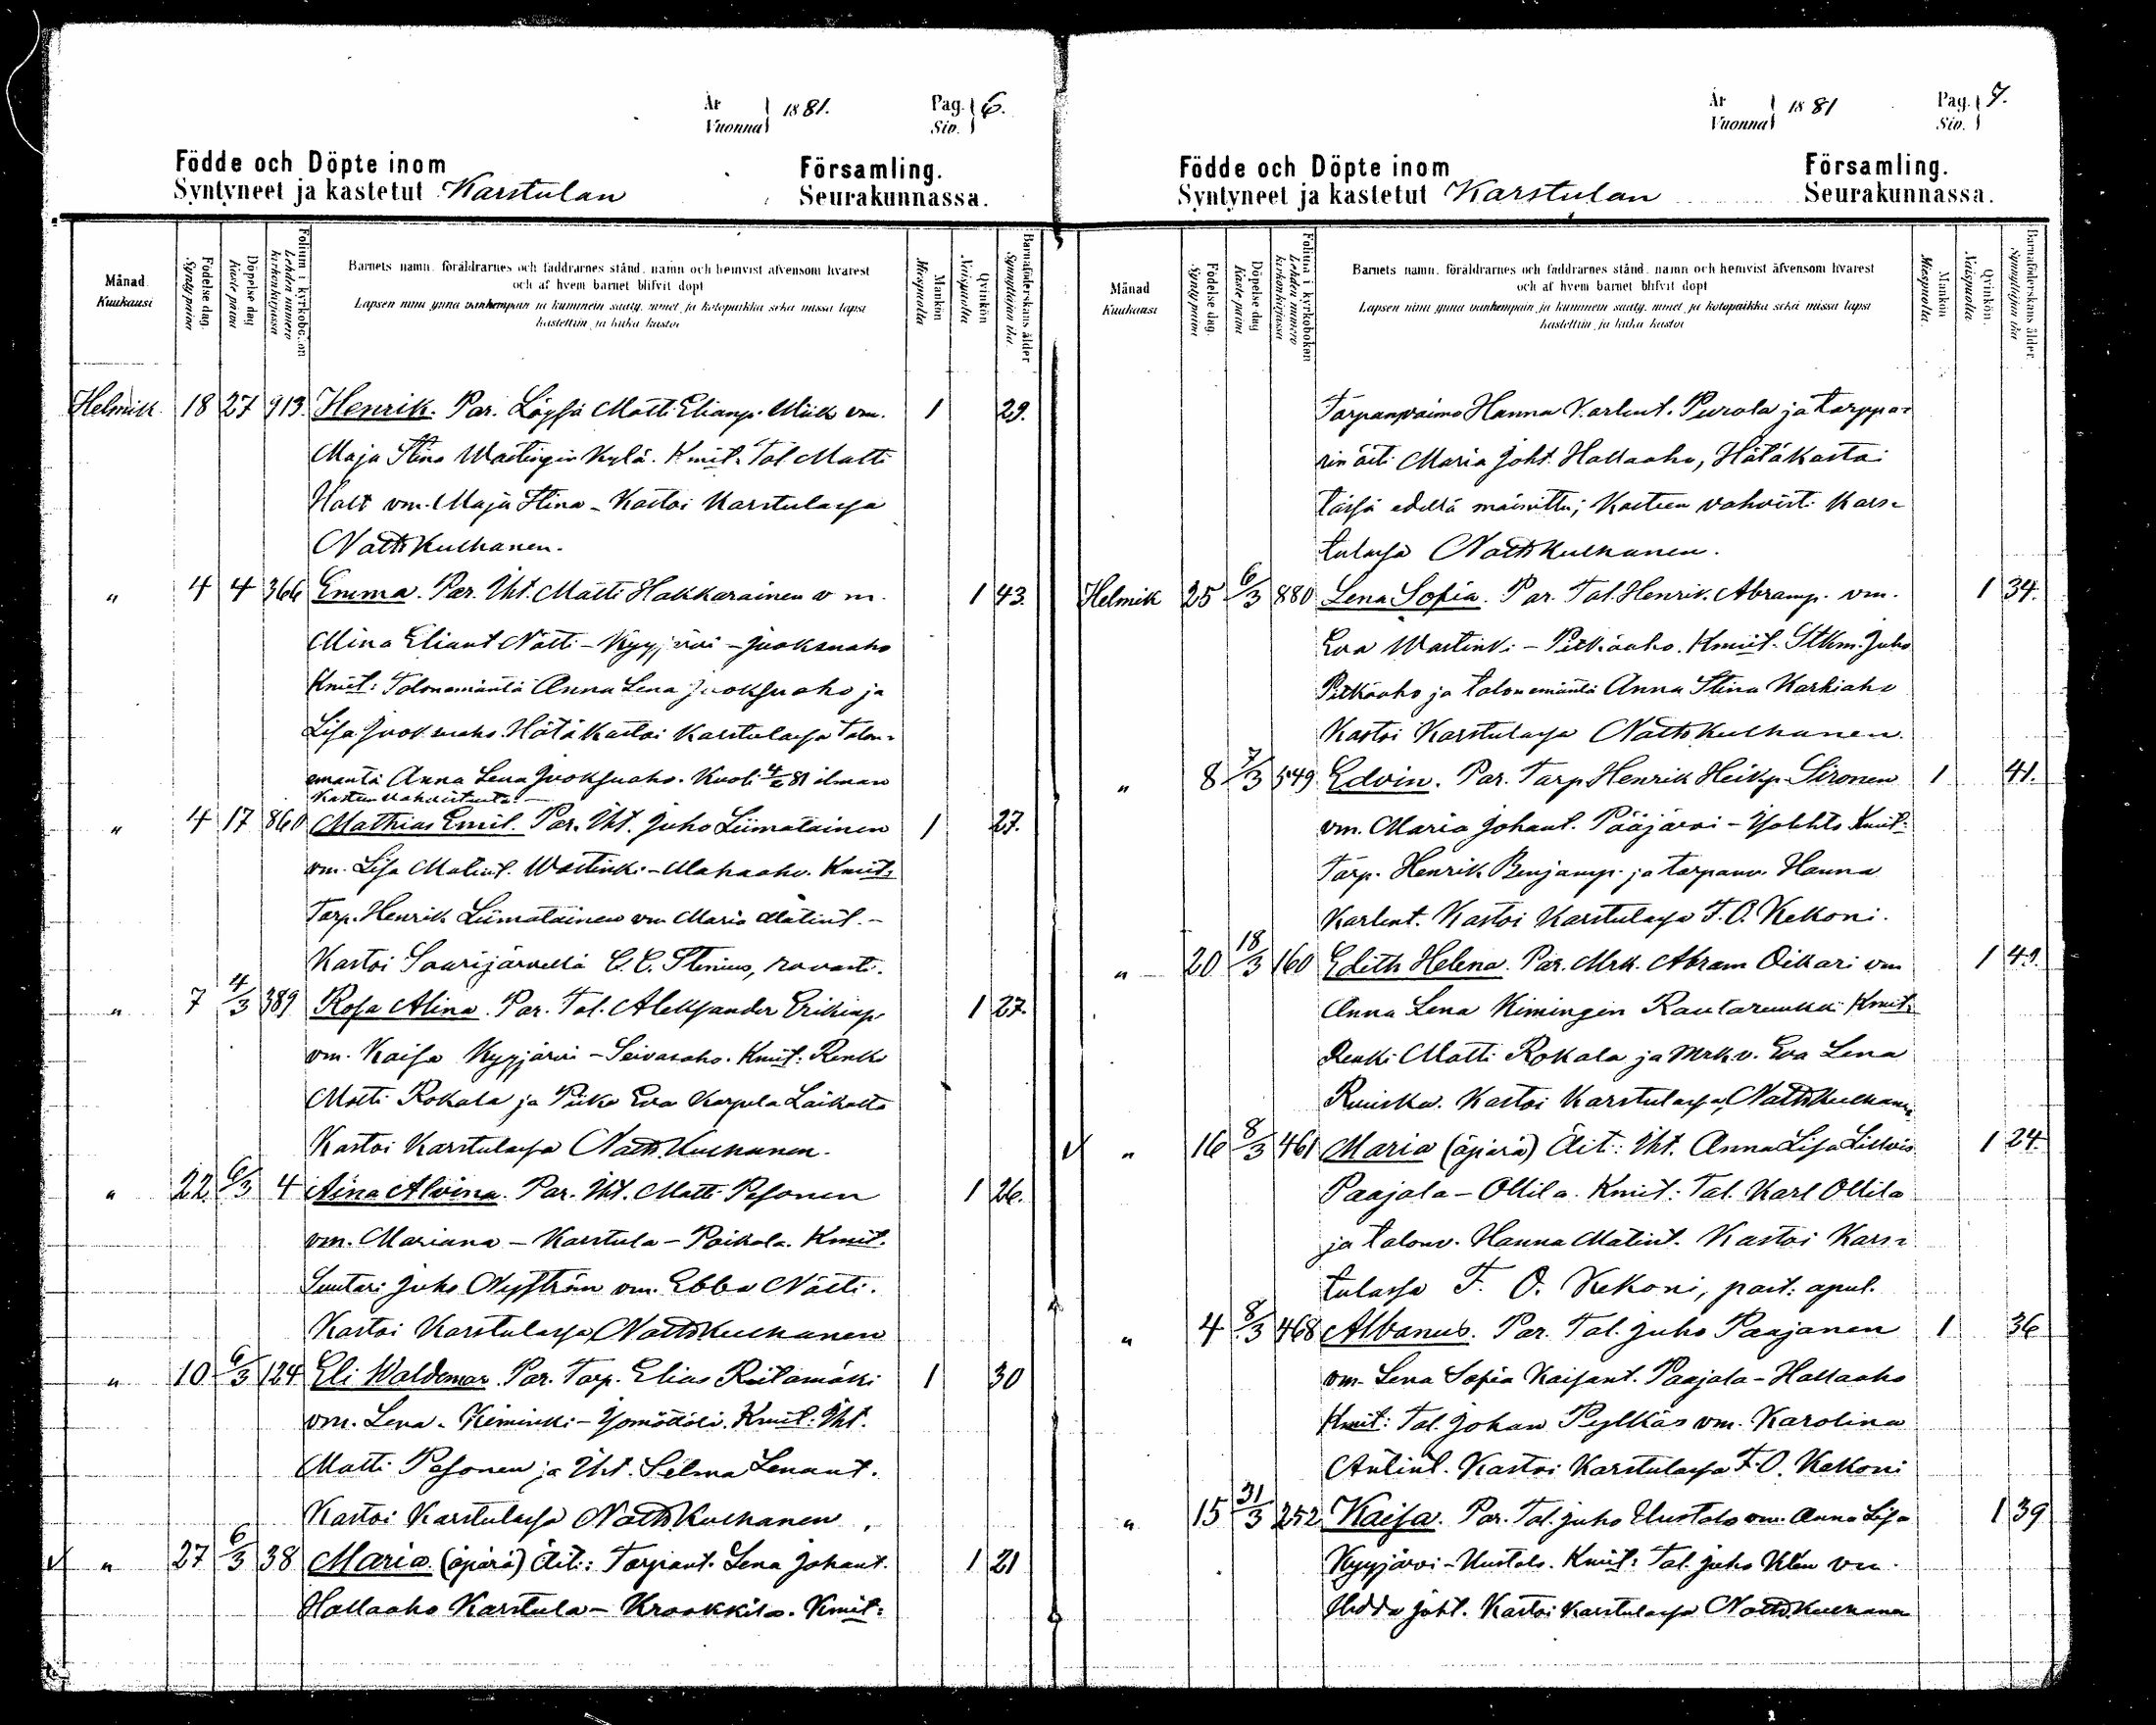 År
Vuonna 1881.
Pag. 6.
Siv.
Födde och Döpte inom Församling.
Syntyneet ja kastetut Karstulan Seurakunnassa.
Månad
Kuukausi
Födelse dag.
Synty paiva
Döpelse dag
Kaste paiva
Folium i kyrkoboken
Lehden numero
kirkonkirjassa
Barnets namn, föräldrarnes och faddrarnes stånd, namn och hemvist äfvensom hvarest
och af hvem barnet blifvit döpt
Lapsen nimi ynnä vanhempain ja kummein sääty, nimet ja kotopaikka sekä missä lapsi
kastettiin ja kuka kastoi
Mankön
Miespuolta
Qvinkön
Naispuolta
Barnaföderskans ålder
Synnyttäjän ikä
Helmik. 18 27 913. Henrik. Par. Löysä Matti Elianp. Miik vm. 1 29.
Maja Stina Wastingin Kylä. Kmit: Tal. Matti
Halt vm. Maja Stina - Kastoi Karstulassa
Natth. Kuckanen.
" 4 4 366 Emma. Par. Iht. Matti Hakkarainen v m. 1 43.
Mina Eliant Nätti - Kyyjärvi - Juoksuaho
Kmit: Talonemäntä Anna Lena Juoksuaho ja
Lisa Juoksuaho. Hätäkastoi Karstulassa talon-
emäntä Anna Lena Juoksuaho. Kuoli 4/2 81 ilman
Kasteen vahvistusta -
" 4 17 860 Mathias Emil. Par. Iht. Juho Liimatainen 1 27.
vm. Lisa Matint. Wastinki - Mahaaho. Kmit:
Tarp. Henrik Liimatainen vm Maria Matint. -
Kastoi Saarijärvellä C. C. Stenius, rovasti.
" 7 4/3 389 Rosa Alina. Par. Tal. Aleksander Erikinp. 1 27.
vm. Kaisa Kyyjärvi - Seivasaho. Kmit: Renki
Matti Rokala ja Piika Eva Karpela Laikatta
Kastoi Karstulassa Natth. Kuckanen.
" 22 6/3 4 Aina Alvina. Par. Iht. Matti Pesonen 1 26.
vm. Mariana - Karstula - Poikola. Kmit.
Suutari Juho Nyström vm. Ebba Nätti.
Kastoi Karstulassa Natth. Kuckanen
" 10 6/3 124 Eli Waldemar. Par. Tarp. Elias Riitamäki 1 30
vm. Lena. Kiminki - Kmit: Iht.
Matti Pesonen ja Iht. Selma Lenant.
Kastoi Karstulassa Natth. Kuckanen.
" 27 6/3 38 Maria. (äpärä) Äiti: Tarpiant. Lena Johant. 1 21
Hallaaho Karstula - Krookkila. Kmit:
År
Vuonna 1881
Pag. 7.
Siv.
Födde och Döpte inom Församling.
Syntyneet ja kastetut Karstulan Seurakunnassa.
Månad
Kuukausi
Födelse dag.
Synty paiva
Döpelse dag
Kaste paiva
Folium i kyrkoboken
Lehden numero
kirkonkirjassa
Barnets namn, föräldrarnes och faddrarnes stånd, namn och hemvist äfvensom hvarest
och af hvem barnet blifvit döpt
Lapsen nimi ynnä vanhempain ja kummein sääty, nimet ja kotopaikka sekä missä lapsi
kastettiin ja kuka kastoi
Mankön
Miespuolta.
Qvinkön.
Naispuolta
Barnaföderskans ålder.
Synnyttäjän ikä
Tarpanvaimo Hanna Karlint. Purola ja tarppa-
rin äiti Maria Joht. Hallaaho, Hätäkastoi
tässä edellä mainittu; Kasteen vahvisti Kars-
tulassa Natth. Kuckanen.
Helmik 25 6/3 880 Lena Sofia. Par. Tal. Henrik. Abramp. vm. 1 34.
Eva Wastinki - Pitkäaho. Kmit. Stkm. Juho
Pitkäaho ja talonemäntä Anna Stina Karkiaho
Kastoi Karstulassa Natth. Kuckanen.
" 8 7/3 549 Edvin. Par. Tarp Henrik Heikp. Sironen 1 41.
vm. Maria Johant. Pääjärvi - Kmit:
Tarp. Henrik Benjamp. ja tarpanv. Hanna
Karlint. Kastoi Karstulassa F. O. Kekoni.
" 20 18/3 160 Edith Helena. Par. Mrk. Abram Oikari vm 1 49.
Anna Lena Kimingin Rautaruukki Kmit:
Renki Matti Rokala ja Mrk.v. Eva Lena
Ruuska. Kastoi Karstulassa, Natth. Kuckanen
" 16 8/3 461 Maria (äpärä) Äit: Iht. Anna Lisa 1 24.
Paajala - Ollila. Kmit: Tal. Karl Ollila
ja talonv. Hanna Matint. Kastoi Kars-
tulassa F. O. Kekoni, past. apul.
" 4 8/3 468 Albanus. Par. Tal. Juho Paajanen 1 36
vm. Lena Sofia Kaisant. Paajala - Hallaaho
Kmit: Tal. Johan Pylkäs vm. Karolina
Antint. Kastoi Karstulassa F. O. Kekoni
" 15 31/3 252 Kaisa. Par. Tal. Juho Uustalo vm. Anna Lisa 1 39
Kyyjärvi - Uustalo. Kmit: Tal. Juho vm.
Hedda Joht. Kastoi Karstulassa Natth. Kuckanen